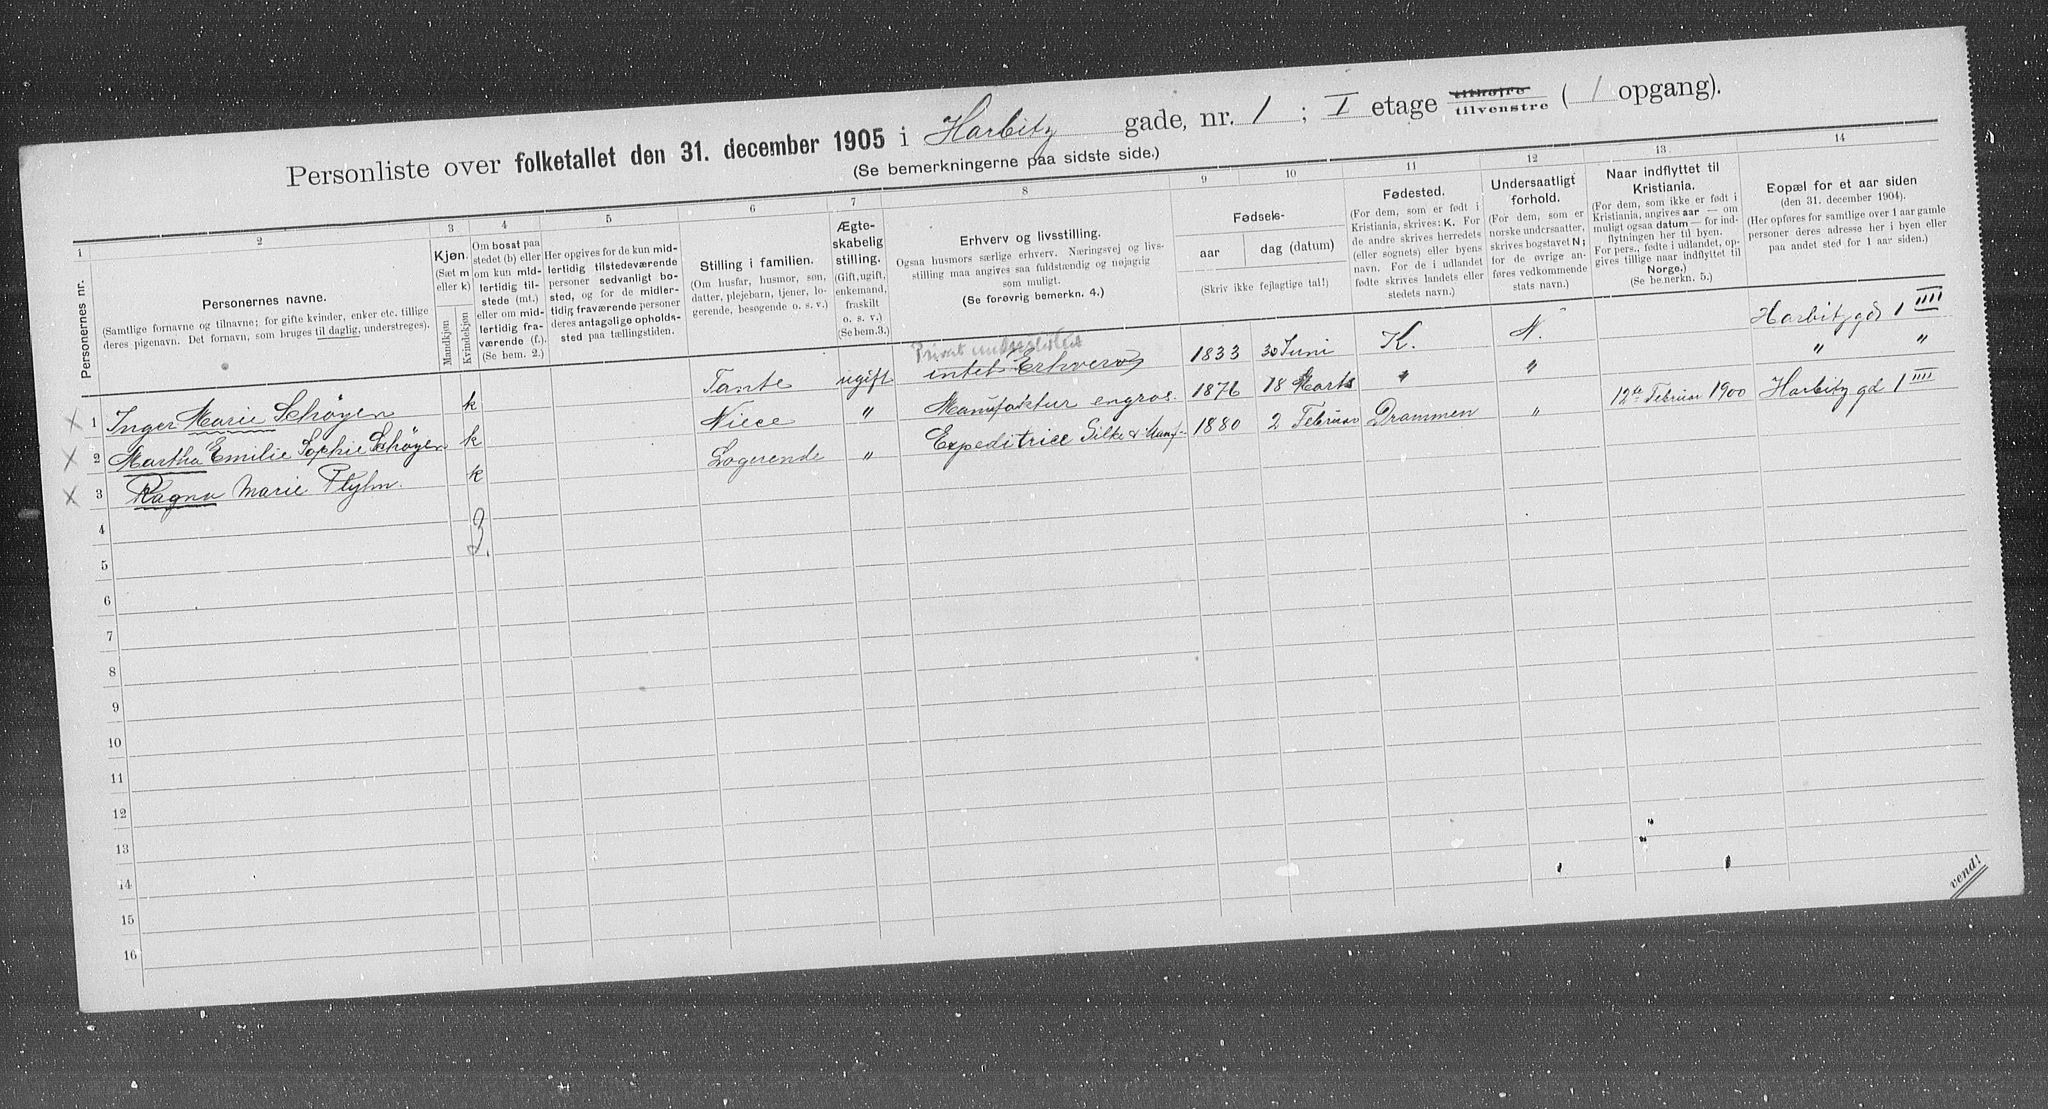 Personliste over folketallet den 31. december 1905 i Harbitz gade, nr. 1 ; I etage tilhøjre tilvenstre ( 1 opgang).
(Se bemerkningerne paa sidste side.)
1 2 3 4 5 6 7 8 9 10 11 12 13 14
Personernes nr.
Personernes navne.
(Samtlige fornavne og tilnavne; for gifte kvinder, enker etc. tillige
deres pigenavn. Det fornavn, som bruges til daglig, understreges).
Kjøn.
(Sæt m
eller k)
Mandkjøn
Kvindekjøn
Om bosat paa
stedet (b) eller
om kun mid-
lertidig til-
stede (mt.)
eller om mid-
lertidig fra-
værende (f.).
(Se bem. 2.)
Her opgives for de kun mid-
lertidig tilstedeværende
personer sedvanligt bo-
sted, og for de midler-
tidig fraværende personer
deres antagelige opholds-
sted paa tællingstiden.
Stilling i familien.
(Om husfar, husmor, søn,
datter, plejebarn, tjener, lo-
gerende, besøgende o. s. v.)
Ægte-
skabelig
stilling.
(Gift, ugift,
enkemand,
fraskilt
o. s. v.)
(Se bem.3.)
Erhverv og livsstilling.
Ogsaa husmors særlige erhverv. Næringsvej og livs-
stilling maa angives saa fuldstændig og nøjagtig
som muligt.
(Se forøvrig bemerkn. 4.)
Fødsels-
aar
dag (datum)
(Skriv ikke fejlagtige tal!)
Fødested.
(For dem, som er født i
Kristiania, skrives: K. For
de andre skrives herredets
(eller sognets) eller byens
navn. For de i udlandet
fødte skrives landets eller
stedets navn.)
Undersaatligt
forhold.
(For dem, som er
norske undersaatter,
skrives bogstavet N;
for de øvrige an-
føres vedkommende
stats navn.)
Naar indflyttet til
Kristiania.
(For dem, som ikke er født i
Kristiania, angives aar — om
muligt ogsaa datum — for ind-
flytningen her til byen.
For pers., fødte i udlandet, op-
gives tillige naar indflyttet til
Norge.)
(Se bemerkn. 5.)
Bopæl for et aar siden
(den 31. december 1904).
(Her opføres for samtlige over 1 aar gamle
personer deres adresse her i byen eller
paa andet sted for 1 aar siden.)
Privat understøttet
× 1 Inger Marie Schøyen k Tante ugift intet Erhverv 1833 30 Juni K. N. Harbitz gd 1 IIII
× 2 Martha Emilie Sophie Schøyen k Niece " Manufaktur engros. 1876 18 Marts " " " "
× 3 Ragna Marie Flyhn. k Logerende " Expeditrice Silke & Manf- 1880 2 Februar Drammen " 12te Februar 1900 Harbitz gd 1 IIII
4
3.
5
6
7
8
9
10
11
12
13
14
15
16
vend!